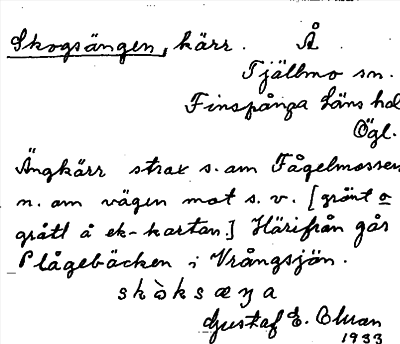 Skogsängen, kärr. Å
Tjällmo sn.
Finspånga Läns hd
Ögl.
Ängkärr strax s. om Fågelmossen
n. om vägen mot s. v. [grönt o
grått å ek-kartan.] Härifrån går
Plågebäcken i Vrångsjön.
skòksæŋa
Gustaf E.
1933